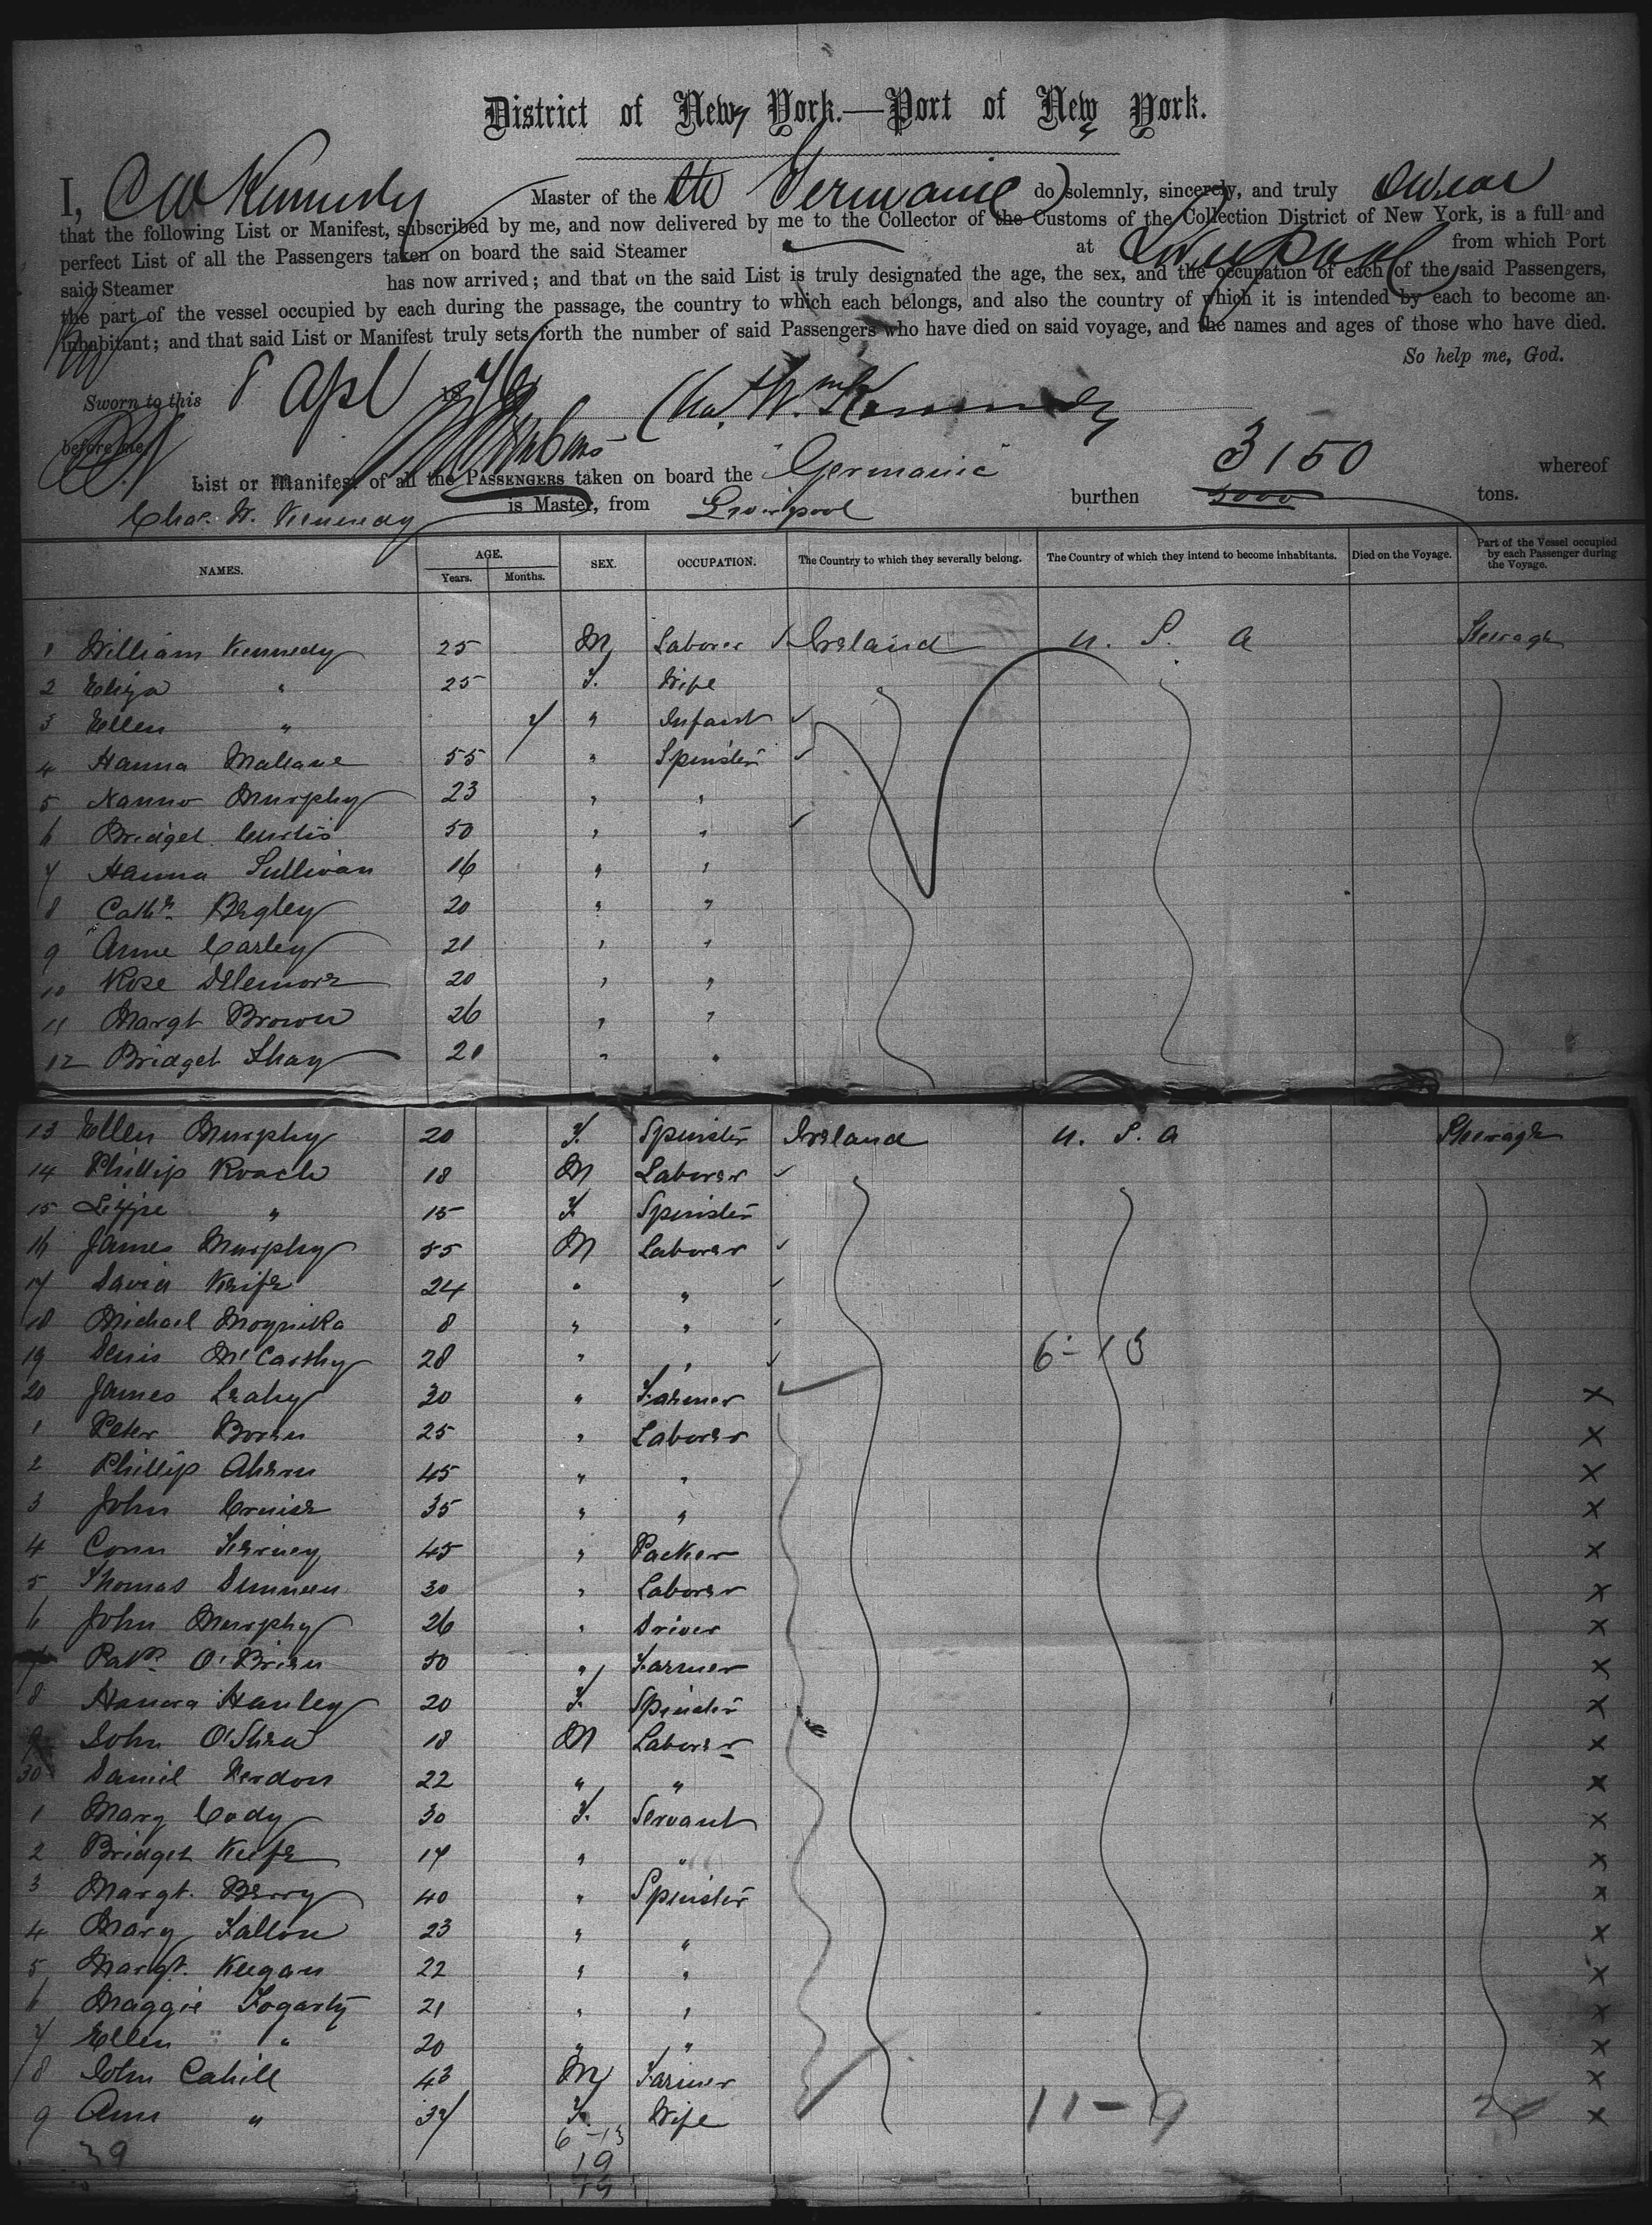 District of New York.—Port of New York.
I, C W Kennedy Master of the Germanic do solemnly, sincerely, and truly swear
that the following List or Manifest, subscribed by me, and now delivered by me to the Collector of the Customs of the Collection District of New York, is a full and
perfect List of all the Passengers taken on board the said Steamer at Liverpool from which Port
said Steamer has now arrived; and that on the said List is truly designated the age, the sex, and the occupation of each of the said Passengers,
the part of the vessel occupied by each during the passage, the country to which each belongs, and also the country of which it is intended by each to become an
inhabitant; and that said List or Manifest truly sets forth the number of said Passengers who have died on said voyage, and the names and ages of those who have died.
So help me, God.
Sworn to this 8 Apl 187 Chas. W. Kennedy
before me,
List or Manifest of all the PASSENGERS taken on board the Germanic 3150 whereof
Chas. W. Kennedy is Master, from Liverpool burthen 3000 tons.
NAMES. AGE. Years. Months. SEX. OCCUPATION. The Country to which they severally belong. The Country of which they intend to become inhabitants. Died on the Voyage. Part of the Vessel occupied by each Passenger during the Voyage.
1 William Kennedy 25 M Laborer Ireland U. S. A Steerage
2 Eliza " 25 F. Wife
3 Ellen " 7 " Infant
4 Hanna 55 " Spinster
5 Murphy 23 " "
6 Bridget Curtis 50 " "
7 Hanna Sullivan 16 " "
8 Cathe Begley 20 " "
9 Anne Carley 21 " "
10 Rose 20 " "
11 Margt Brown 26 " "
12 Bridget Shay 21 " "
13 Ellen Murphy 20 F. Spinster Ireland U. S. A Steerage
14 Phillip Roach 18 M Laborer
15 Lizzie " 15 F Spinster
16 James Murphy 55 M Laborer
17 David Keife 24 " "
18 Michael 8 " "
19 Denis McCarthy 28 " " 6-13
20 James Leahy 30 " Farmer X
1 Peter 25 " Laborer X
2 Phillip Ahern 45 " " X
3 John Cruise 35 " " X
4 Conn 45 " Packer X
5 Thomas Dunneen 30 " Laborer X
6 John Murphy 26 " Driver X
7 Patk O'Brien 50 " Farmer X
8 Hanora Hanley 20 F. Spinster X
9 John O'Shea 18 M Laborer X
30 Daniel Reardon 22 " " X
1 Mary Cody 30 F. Servant X
2 Bridget Keefe 17 " " X
3 Margt. Berry 40 " Spinster X
4 Mary Fallon 23 " " X
5 Margt. Keegan 22 " " X
6 Maggie Fogarty 21 " " X
7 Ellen " 20 " " X
8 John Cahill 43 M Farmer X
9 Ann " 37 F. Wife 11-9 X
39 6-13
19